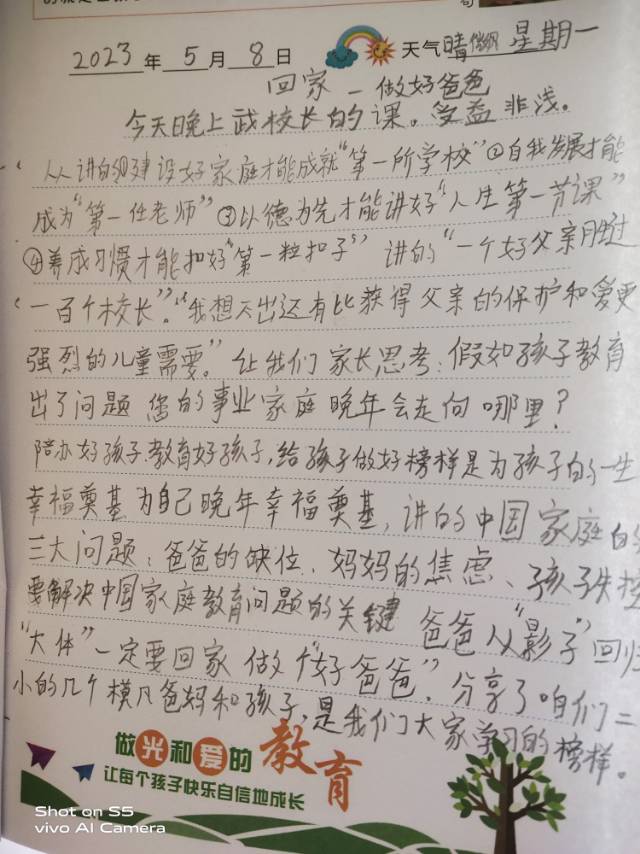 2023年5月8日 天气晴 星期一
回家 — 做好爸爸
今天晚上武校长的课。受益非浅。
从讲的①建设好家庭才能成就"第一所学校"②自我发展才能
成为"第一任老师"③以德为先才能讲好"人生第一节课"
④养成习惯才能扣好"第一粒扣子" 讲的"一个好父亲胜过
一百个校长"。"我想不出还有比获得父亲的保护和爱更
强烈的儿童需要。"让我们家长思考:假如孩子教育
出了问题 您的事业家庭晚年会走向哪里?
陪办好孩子.教育好孩子,给孩子做好榜样是为孩子的一生
幸福奠基为自己晚年幸福奠基,讲的中国家庭的
三大问题:爸爸的缺位、妈妈的焦虑、孩子失控
要解决中国家庭教育问题的关键 爸爸从"影子"回归
"大体"一定要回家做个"好爸爸".分享了咱们二
小的几个模凡爸妈和孩子,是我们大家学习的榜样。
做光和爱的教育
让每个孩子快乐自信地成长
Shot on S5
vivo AI Camera